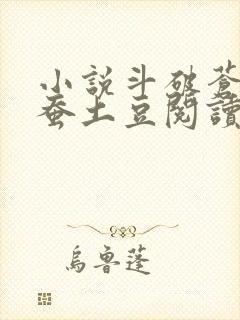 小說斗破蒼
蚕土豆閱讀
烏魯蓬